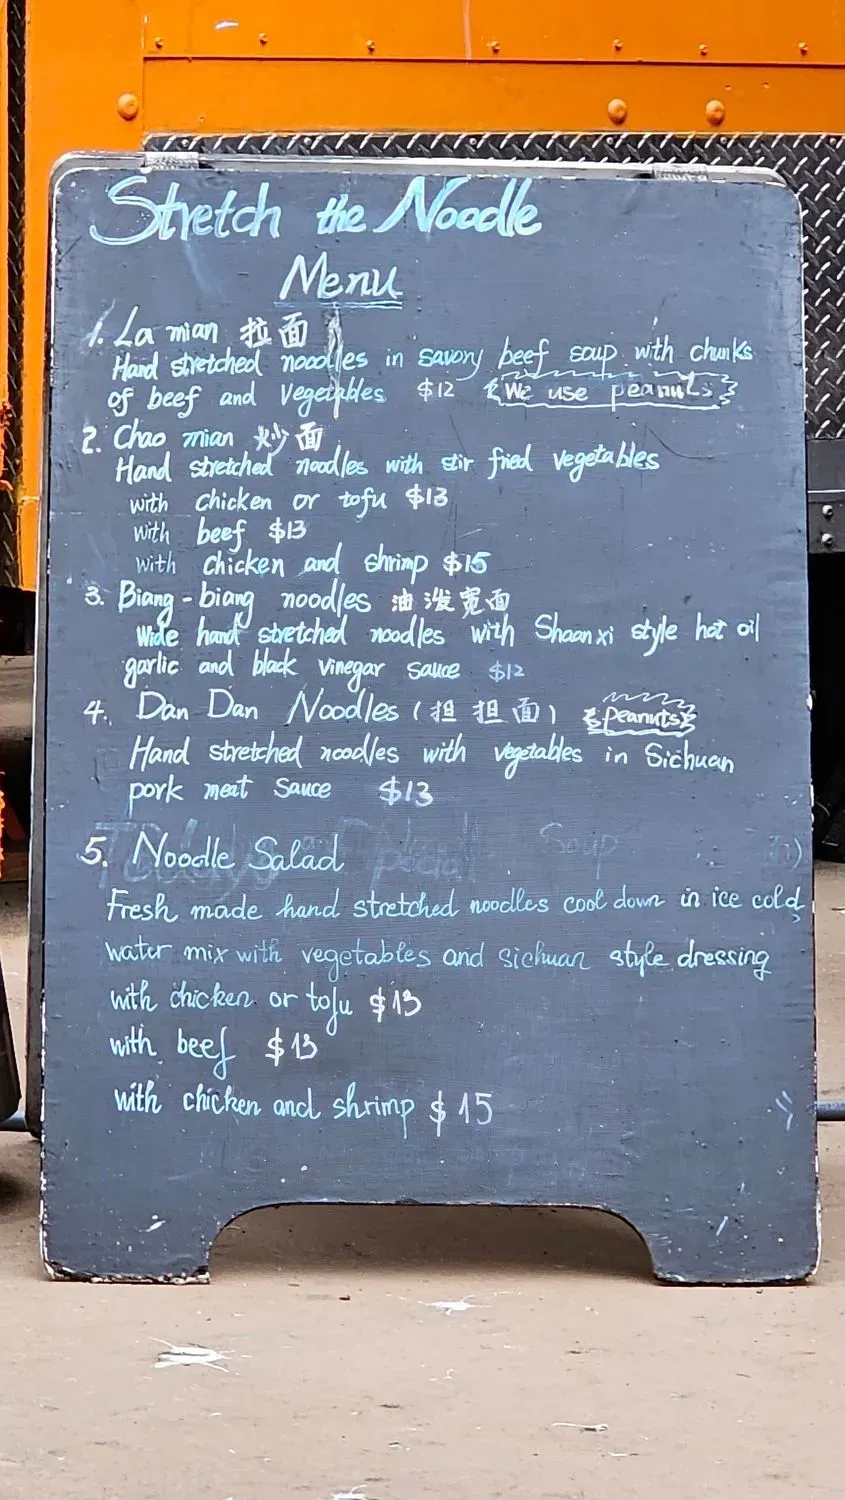 Stretch the Noodle
Menu
1. La mian 拉面
Hand stretched noodles in savory beef soup with chunks
of beef and Vegetables $12 We use peanuts
2. Chao mian 炒面
Hand stretched noodles with stir fried vegetables
with chicken or tofu $13
with beef $13
with chicken and shrimp $15
3. Biang-biang noodles 油泼宽面
Wide hand stretched noodles with Shaanxi style hot oil
garlic and black vinegar sauce $12
4. Dan Dan Noodles (担担面) peanuts
Hand stretched noodles with vegetables in Sichuan
pork meat Sauce $13
5. Noodle Salad
Soup
Fresh made hand stretched noodles cool down in ice cold
water mix with vegetables and sichuan style dressing
with chicken or tofu $13
with beef $13
with chicken and shrimp $15